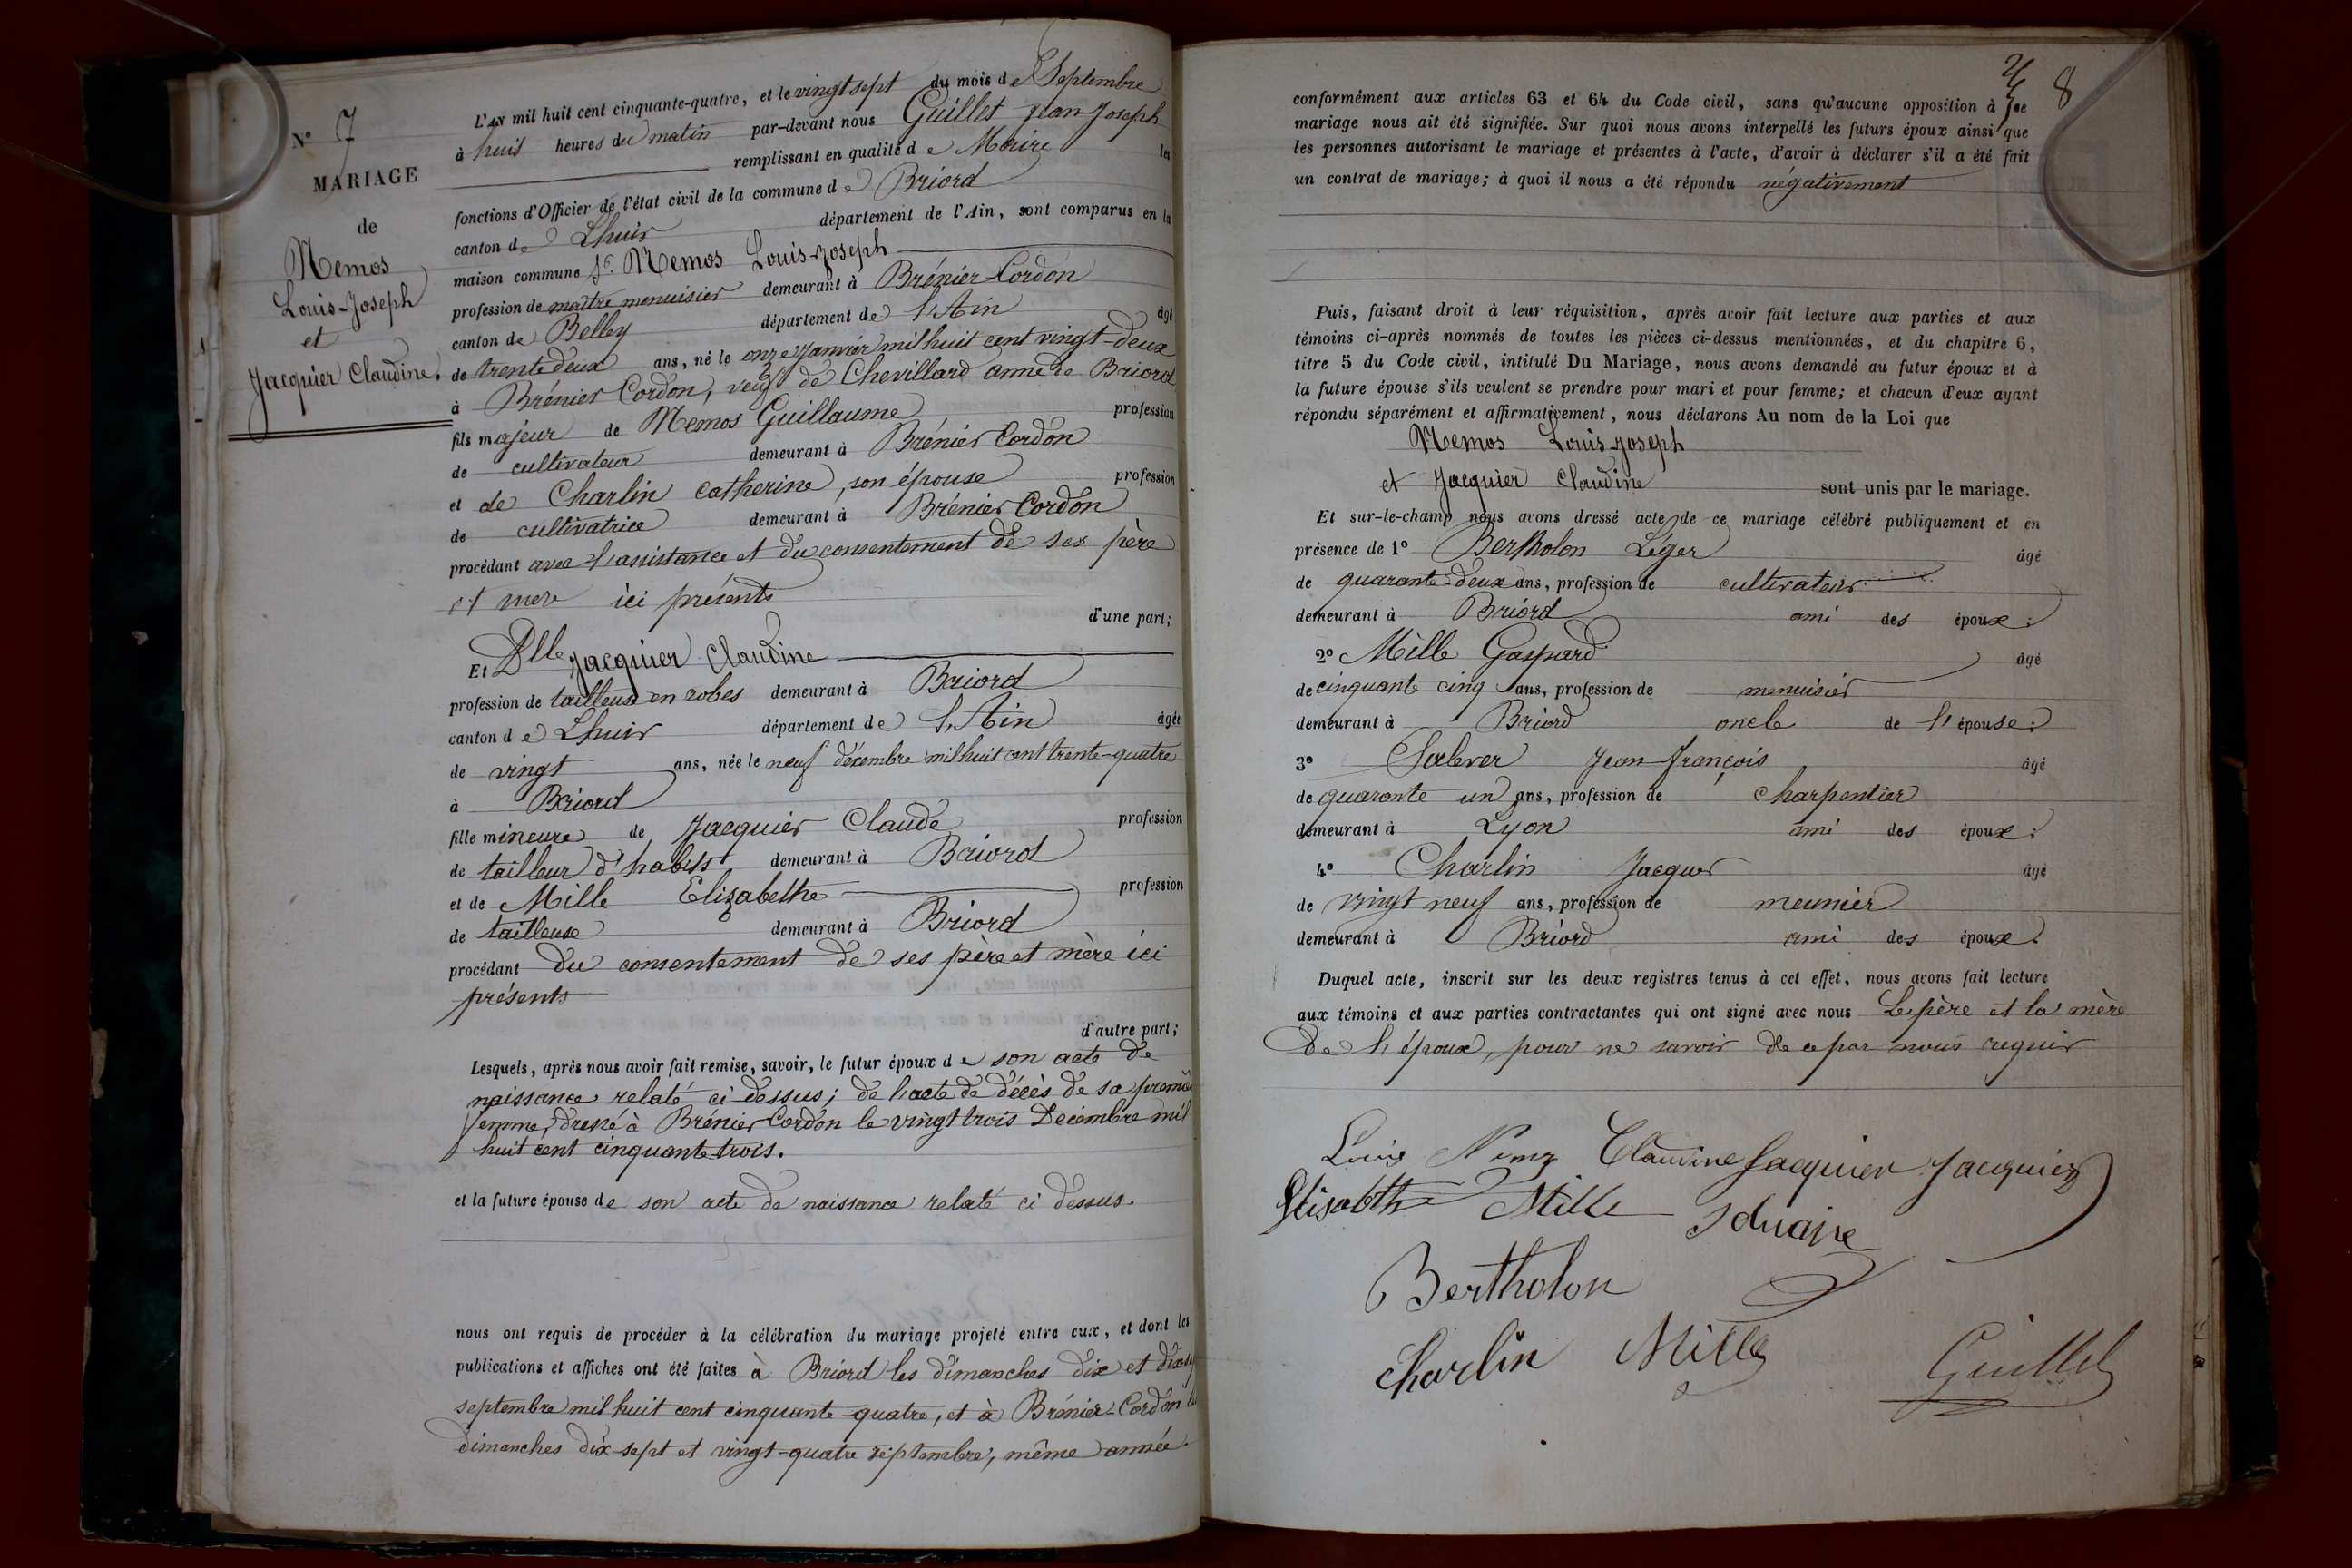 N° 7
MARIAGE
de
Nemos
Louis-Joseph
et
Jacquier Claudine.
L'AN mil huit cent cinquante-quatre, et le vingt sept du mois de Septembre
à huit heures du matin par-devant nous Guillet Jean Joseph
remplissant en qualité de Maire les
fonctions d'Officier de l'état civil de la commune de Briord
canton de Lhuis département de l'Ain, sont comparus en la
maison commune Sr. Nemos Louis-Joseph
profession de maître menuisier demeurant à Brénier-Cordon
canton de Belley département de l'Ain âgé
de trente deux ans, né le onze Janvier mil huit cent vingt-deux
à Brénier Cordon, veuf de Chevillard anne de Briord
fils majeur de Nemos Guillaume profession
de cultivateur demeurant à Brénier Cordon
et de Charlin Catherine, son épouse profession
de cultivatrice demeurant à Brénier Cordon
procédant avec l'assistance et du consentement de ses père
et mere ici présents
d'une part;
Et Dlle Jacquier Claudine
profession de tailleuse en robes demeurant à Briord
canton de Lhuis département de l'Ain âgée
de vingt ans, née le neuf décembre mil huit cent trente-quatre
à Briord
fille mineure de Jacquier Claude profession
de tailleur d'habits demeurant à Briord
et de Mille Elizabethe profession
de tailleuse demeurant à Briord
procédant du consentement de ses père et mère ici
présents
d'autre part;
Lesquels, après nous avoir fait remise, savoir, le futur époux de son acte de
naissance relaté ci dessus; de l'acte de décès de sa premiè
femme, dressé à Brénier Cordon le vingt trois Décembre mil
huit cent cinquante trois.
et la future épouse de son acte de naissance relaté ci dessus.
nous ont requis de procéder à la célébration du mariage projeté entre eux, et dont les
publications et affiches ont été faites à Briord les dimanches dix et dix sep
septembre mil huit cent cinquante-quatre, et à Brénier-Cordon le
dimanches dix-sept et vingt-quatre septembre, même année.
8
conformément aux articles 63 et 64 du Code civil, sans qu'aucune opposition à ce
mariage nous ait été signifiée. Sur quoi nous avons interpellé les futurs époux ainsi que
les personnes autorisant le mariage et présentes à l'acte, d'avoir à déclarer s'il a été fait
un contrat de mariage; à quoi il nous a été répondu négativement
Puis, faisant droit à leur réquisition, après avoir fait lecture aux parties et aux
témoins ci-après nommés de toutes les pièces ci-dessus mentionnées, et du chapitre 6,
titre 5 du Code civil, intitulé Du Mariage, nous avons demandé au futur époux et à
la future épouse s'ils veulent se prendre pour mari et pour femme; et chacun d'eux ayant
répondu séparément et affirmativement, nous déclarons Au nom de la Loi que
Nemos Louis-Joseph
et Jacquier Claudine sont unis par le mariage.
Et sur-le-champ nous avons dressé acte de ce mariage célébré publiquement et en
présence de 1° Bertholon Léger âgé
de quarante-deux ans, profession de cultivateur
demeurant à Briord ami des époux;
2° Mille Gaspard âgé
de cinquante cinq ans, profession de menuisier
demeurant à Briord oncle de l'épouse;
3° Jean-François âgé
de quarante un ans, profession de charpentier
demeurant à Lyon ami des époux;
4° Charlin Jacques âgé
de vingt neuf ans, profession de meunier
demeurant à Briord ami des époux.
Duquel acte, inscrit sur les deux registres tenus à cet effet, nous avons fait lecture
aux témoins et aux parties contractantes qui ont signé avec nous Le père et la mère
de l'époux, pour ne savoir de ce par nous requis
Louis Claudine Jacquier Jacquier
Elisabeth Mille
Bertholon
Charlin Mille Guillet